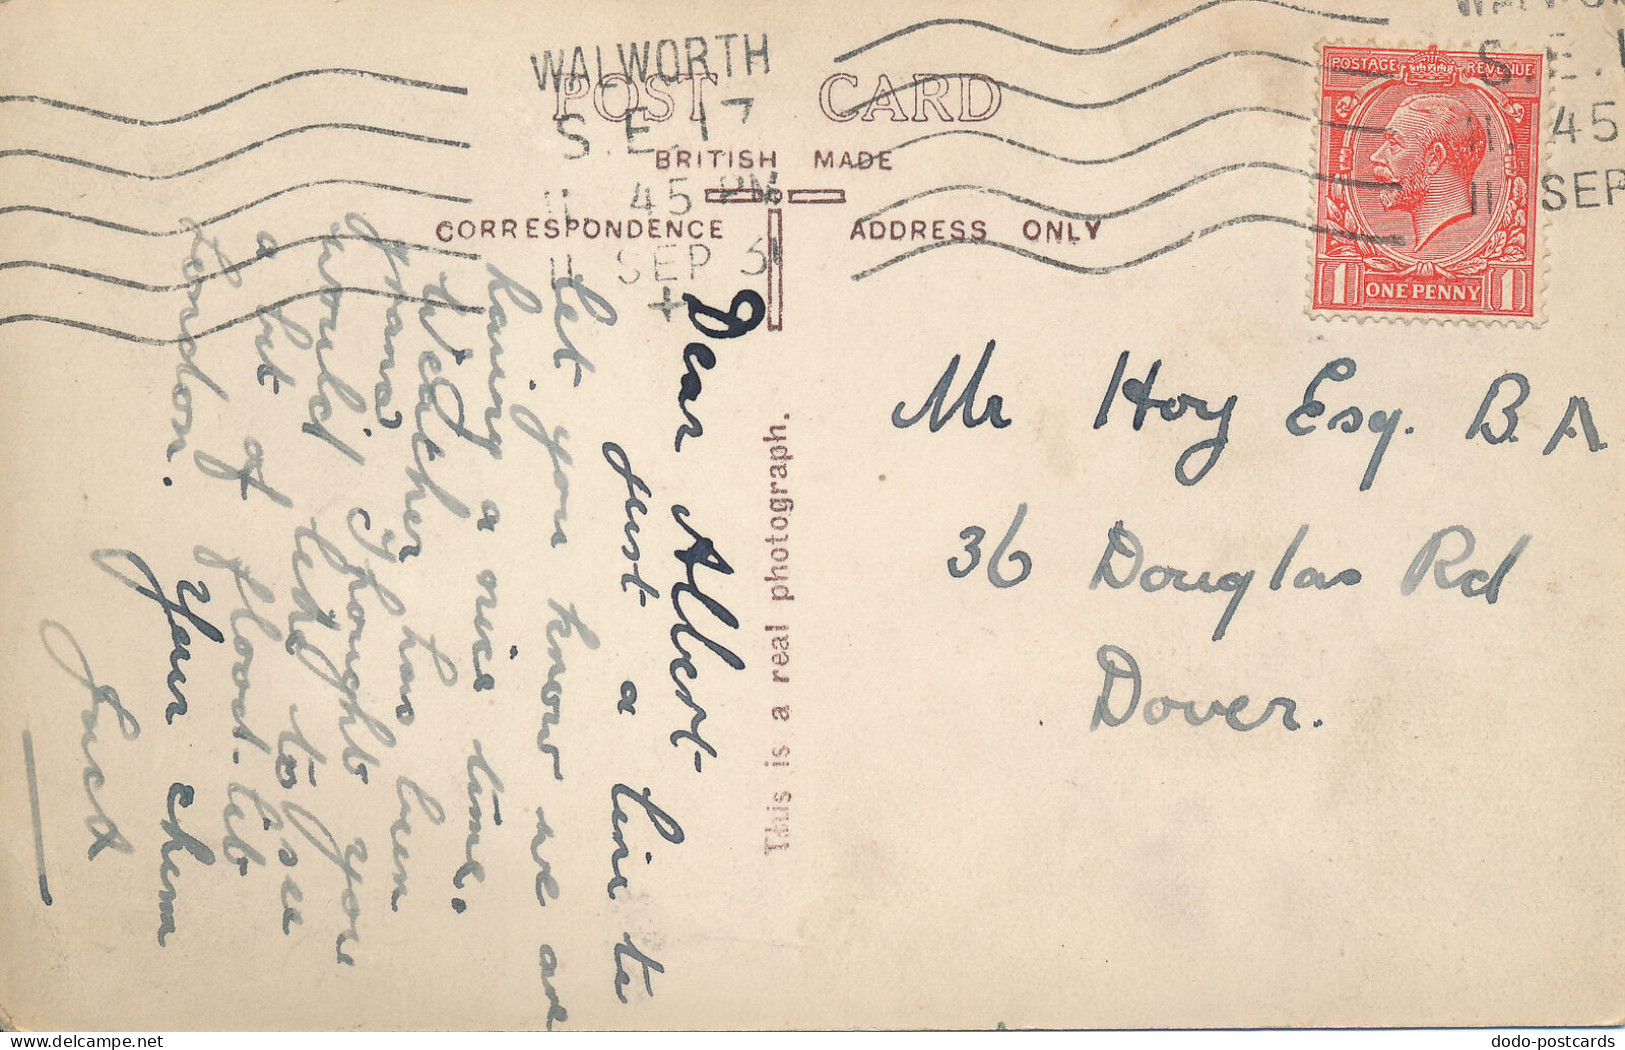 WALWORTH
S.E.17
11 45 PM
11 SEP 31
POST CARD
BRITISH MADE
CORRESPONDENCE
ADDRESS ONLY
POSTAGE REVENUE
1 ONE PENNY 1
S.E.1
11. 45
11 SEP
This is a real photograph.
Mr Hoy Esq. B.A
36 Douglas Rd
Dover.
Dear Albert
just a line to
let you know we are
having a nice time.
Weather has been
grand. I thought you
would like to see
a bit of floodlit
London.
Your chum
Jack
dodo-postcards